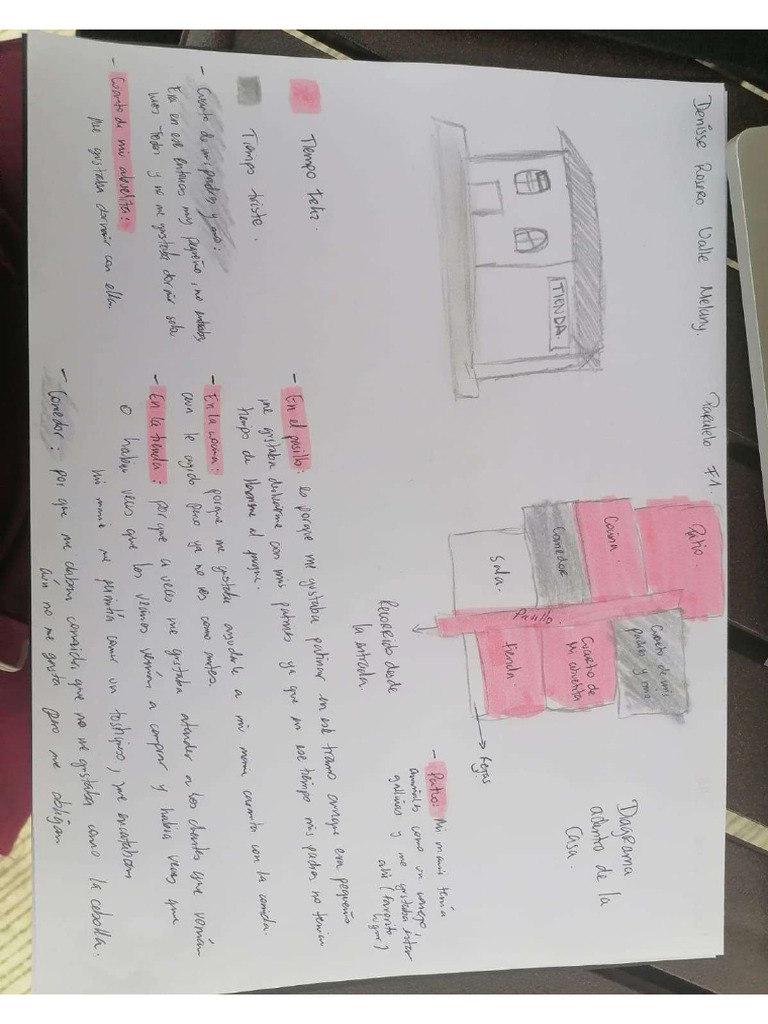 Denisse Rosero Valle Melany.
Paralelo F1.
TIENDA.
Diagrama
adentro de la
casa.
Patio.
Cocina.
Comedor
Sala.
Pasillo.
Cuarto de mis
padres y mio
Cuarto de
Mi abuelita
tienda.
Rejas
Recorrido desde
la entrada.
Tiempo feliz.
Tiempo triste.
- Cuarto de mis padres y mio:
Era en ese entonces muy pequeño, no
mos todos y no me gustaba dormir sola
- Cuarto de mi abuelita:
Me gustaba dormir con ella.
- Patio: Mi mami tenía
animales como un conejo,
gallinas y me gustaba estar
ahí (favorito
lugar)
- En el pasillo: es porque me gustaba patinar en ese tramo aunque era pequeño
me gustaba deslizarme con mis patines ya que en ese tiempo mis padres no tenían
tiempo de llevarme al parque.
- En la cocina: porque me gustaba ayudarle a mi mami carmita con la comida.
aun le ayudo pero ya no es como antes.
- En la tienda: porque a veces me gustaba atender a los clientes que venían
o habia veces que los vecinos venían a comprar y habia veces que
mi mami me permitía comer un tostigueso, me encantaban
- Comedor: por que me daban comida que no me gustaba como la cebolla.
aún no me gusta pero me obligan